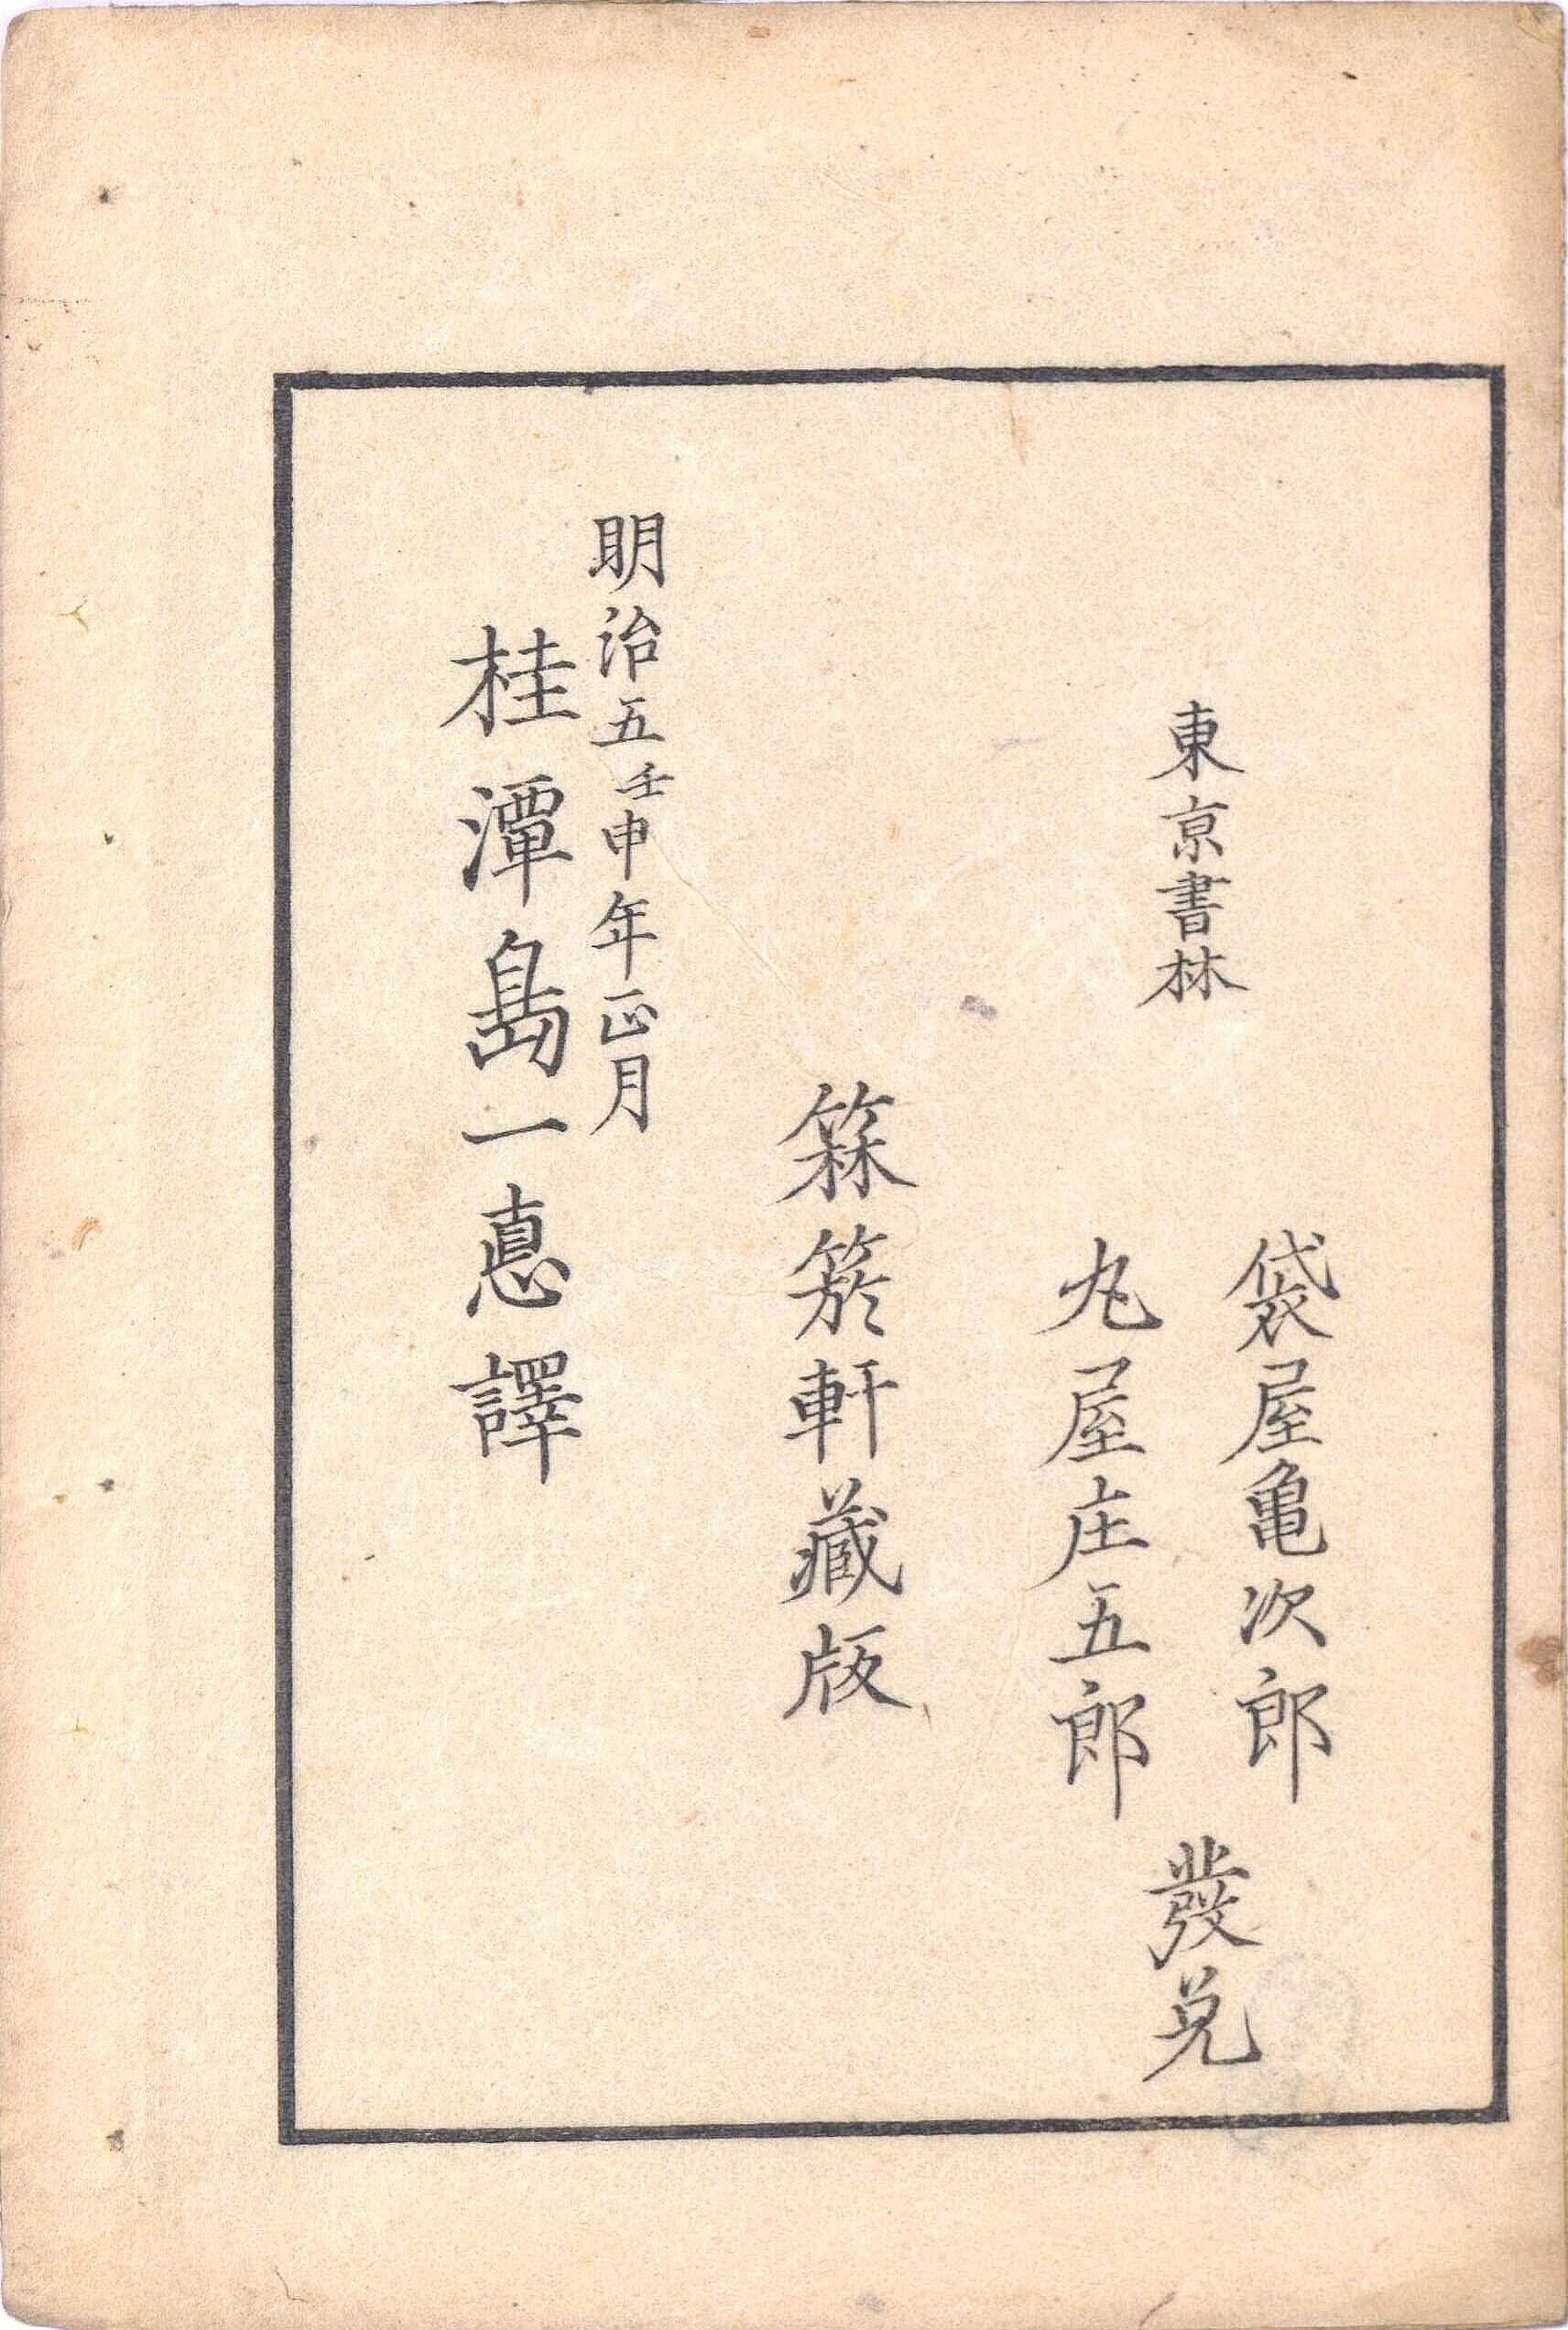 東亰書林
袋屋亀次郎
丸屋庄五郎
發兌
箖箊軒藏版
明治五壬申年正月
桂潭島一悳譯